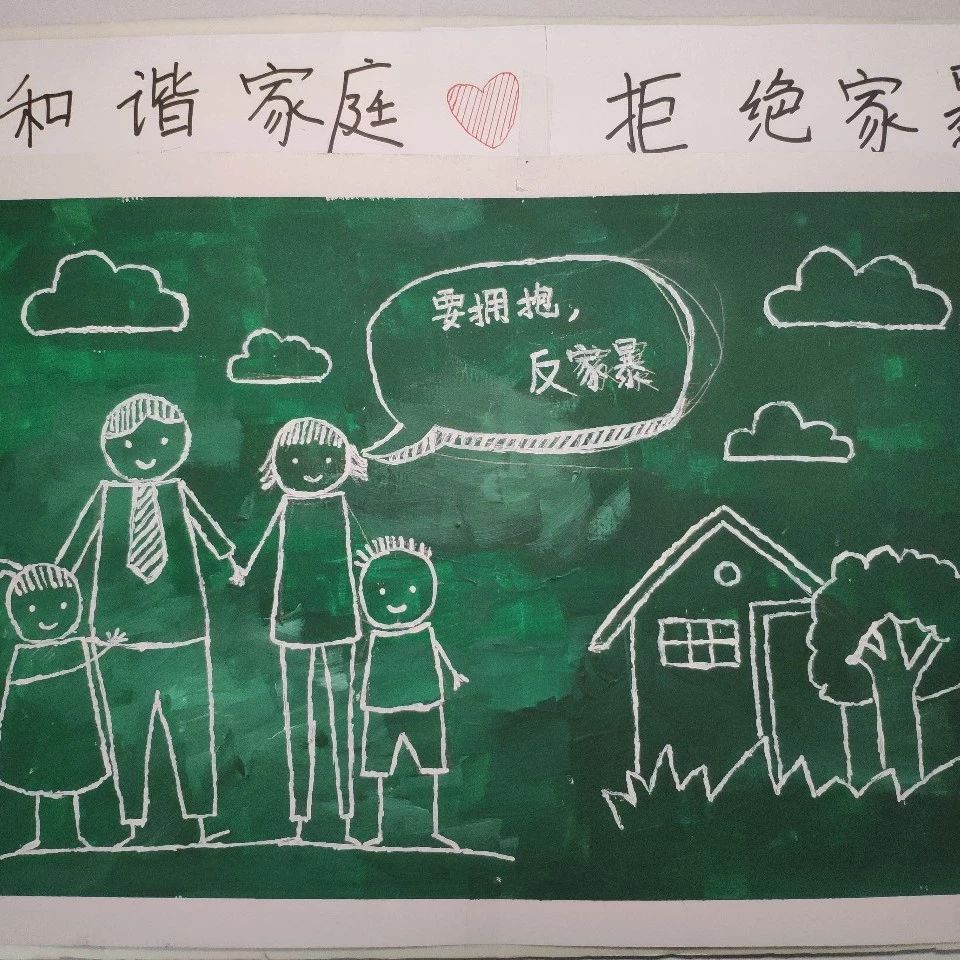 和谐家庭 拒绝家
要拥抱,
反家暴